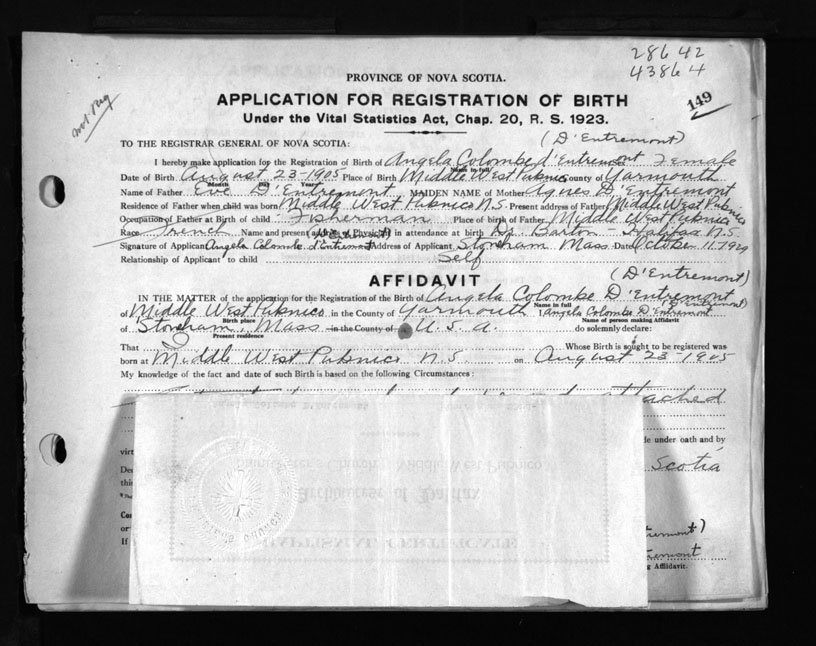 28642
43864
149
Not Reg
PROVINCE OF NOVA SCOTIA.
APPLICATION FOR REGISTRATION OF BIRTH
Under the Vital Statistics Act, Chap. 20, R. S. 1923.
(D'Entremont)
TO THE REGISTRAR GENERAL OF NOVA SCOTIA:
I hereby make application for the Registration of Birth of Angela Colombe d'Entremont Female
Name in full
Date of Birth August 23-1905 Place of Birth Middle West Pubnico County of Yarmouth
Month Day Year
Name of Father D'Entremont MAIDEN NAME of Mother Agnes D'Entremont
Residence of Father when child was born Middle West Pubnico N.S. Present address of Father Middle West Pubnico
Occupation of Father at Birth of child Fisherman Place of birth of Father Middle West Pubnico
Race French Name and present address of Physician in attendance at birth Dr. Barton - Halifax N.S.
(D'Entremont)
Signature of Applicant Angela Colombe d'Entremont Address of Applicant Stoneham Mass Date October 11. 1929
Relationship of Applicant to child Self
AFFIDAVIT
(D'Entremont)
IN THE MATTER of the application for the Registration of the Birth of Angela Colombe D'Entremont
Name in full (D'Entremont)
of Middle West Pubnico in the County of Yarmouth I Angela Colombe D'Entremont
Birth place Name of person making Affidavit
of Stoneham, Mass in the County of U.S.A. do solemnly declare:
Present residence
That Whose Birth is sought to be registered was
born at Middle West Pubnico N.S. on August 23-1905
My knowledge of the fact and date of such Birth is based on the following Circumstances:
attached
de under oath and by
virt
Scotia
Dec
this
Co
or
If
tremont)
tremont
g Affidavit.
Saint Peter's Church, Middle West Pubnico
Archdiocese of Halifax
BAPTISMAL CERTIFICATE